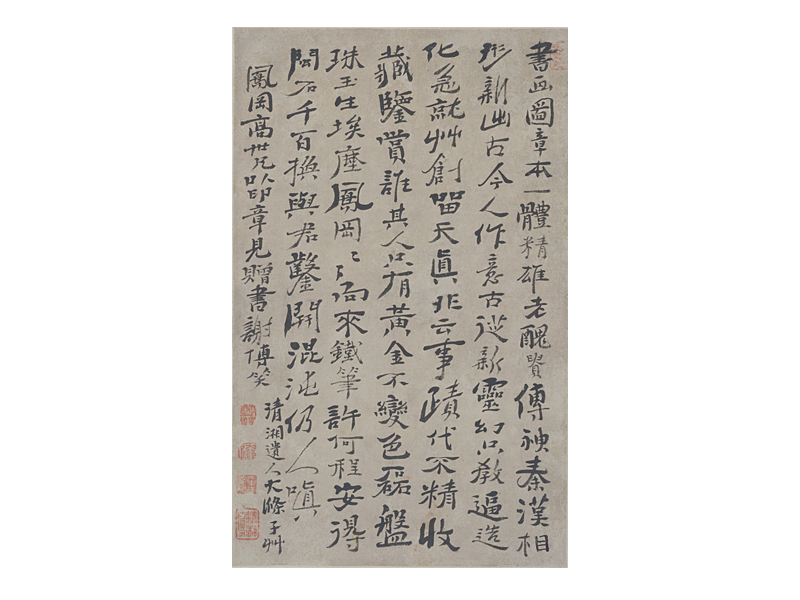 書画圖章本一體精雄老醜貴傳神秦漢相
形新出古今人作意古從新靈幻只教逼造
化急就艸創留天真非云事蹟代不精收
藏鑒賞誰其人只有黃金不變色磊盤
珠玉生埃塵鳳岡〻〻向來鐵筆許何程安得
閩石千百換與君鑿開混沌仍人嗔
鳳岡高世兄以印章見贈書謝博笑
清湘遺人大滌子艸